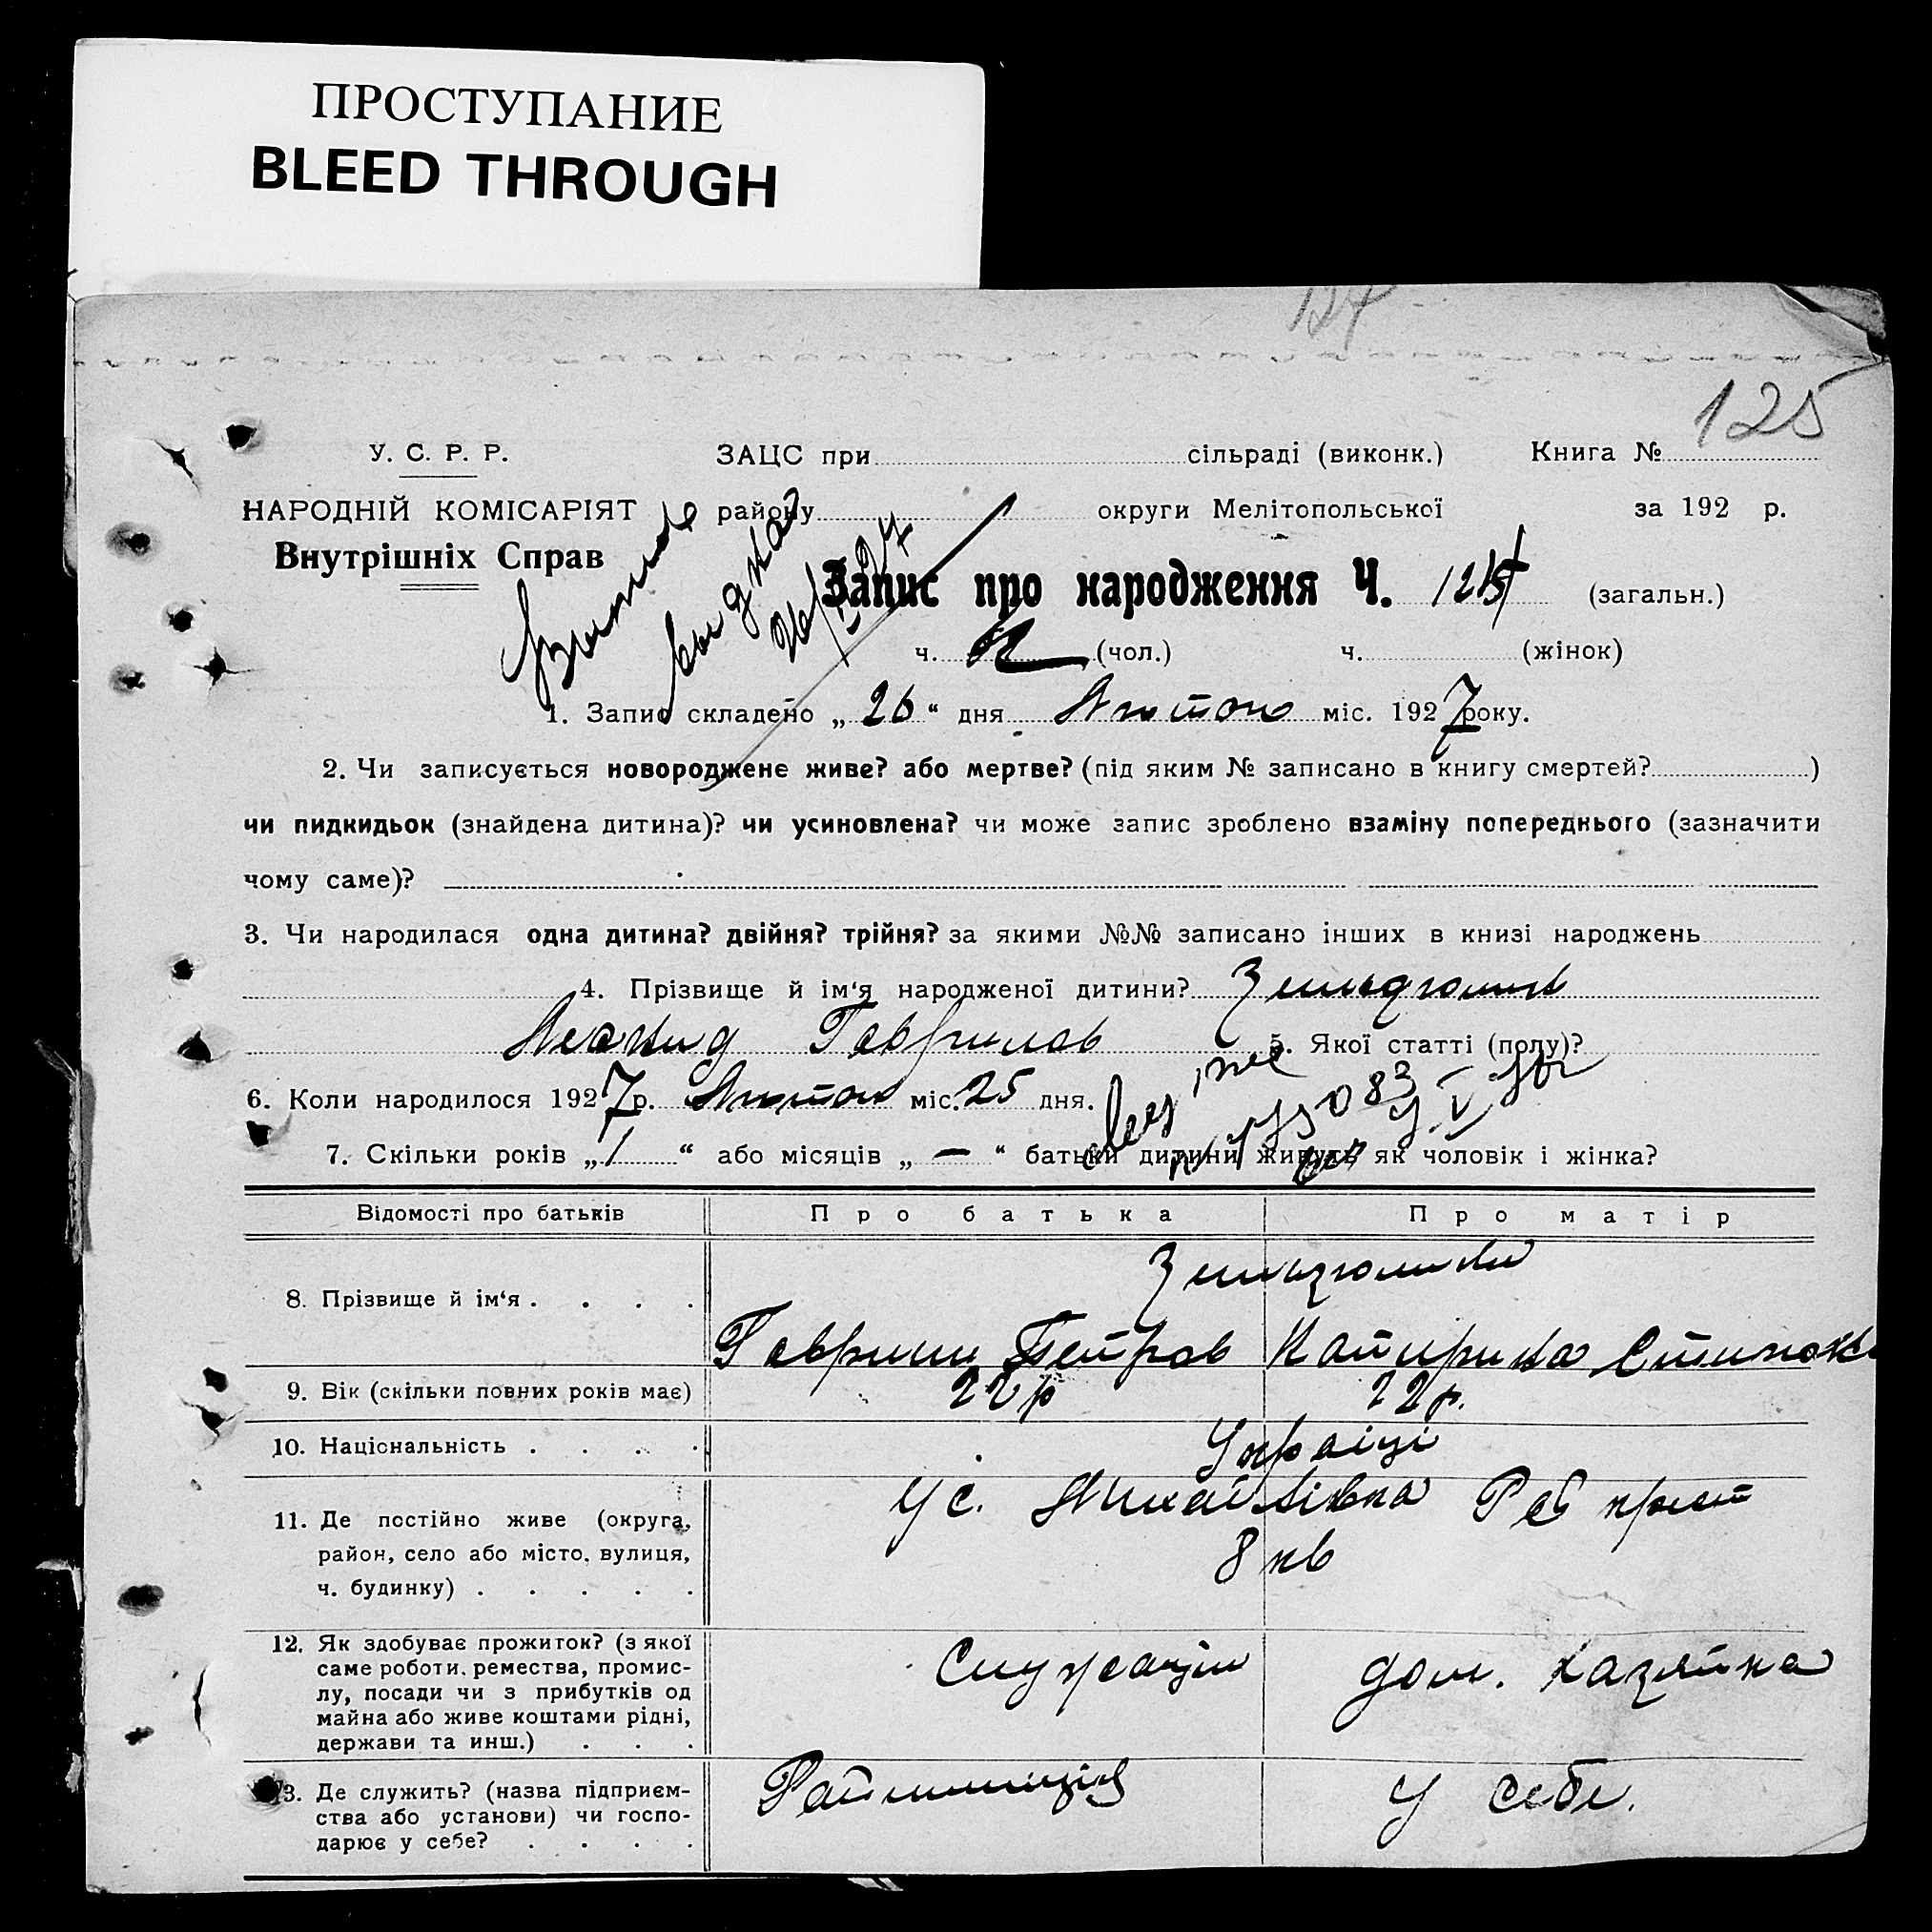 ПРОСТУПАНИЕ
BLEED THROUGH
127
125
У. С. Р. Р. ЗАЦС при сільраді (виконк.) Книга №
НАРОДНІЙ КОМІСАРІЯТ району округи Мелітопольської за 192 р.
Внутрішніх Справ
Запис про народження Ч. (загальн.)
ч. (чол.) ч. (жінок)
1. Запис складено „ 26 “ дня Лютого міс. 1927 року.
2. Чи записується новороджене живе? або мертве? (під яким № записано в книгу смертей? )
чи пидкидьок (знайдена дитина)? чи усиновлена? чи може запис зроблено взаміну попереднього (зазначити
чому саме)?
3. Чи народилася одна дитина? двійня? трійня? за якими №№ записано інших в книзі народжень
4. Прізвище й ім‘я народженої дитини?
Леонид Гаврилов 5. Якої статті (полу)?
6. Коли народилося 1927 р. Лютого міс. 25 дня.
7. Скільки років „ 1 “ або місяців „ — “ батьки дитини живуть як чоловік і жінка?
Відомості про батьків Про батька Про матір
8. Прізвище й ім‘я . . . .
Гаврило Петров Катирина
9. Вік (скільки повних років має) 22 р 22 р.
10. Національність . . . . Українці
11. Де постійно живе (округа, район, село або місто, вулиця, ч. будинку) . . . . .
У с. Михайлівка
8 кв
12. Як здобуває прожиток? (з якої саме роботи, ремества, промислу, посади чи з прибутків од майна або живе коштами рідні, держави та инш.) . . .
Служащий дом. хазяйка
13. Де служить? (назва підприємства або установи) чи господарює у себе? . . . .
Райміліція У себе.